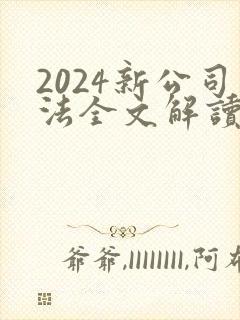 2024新公司
法全文解讀
爷爷,llllllll,阿布